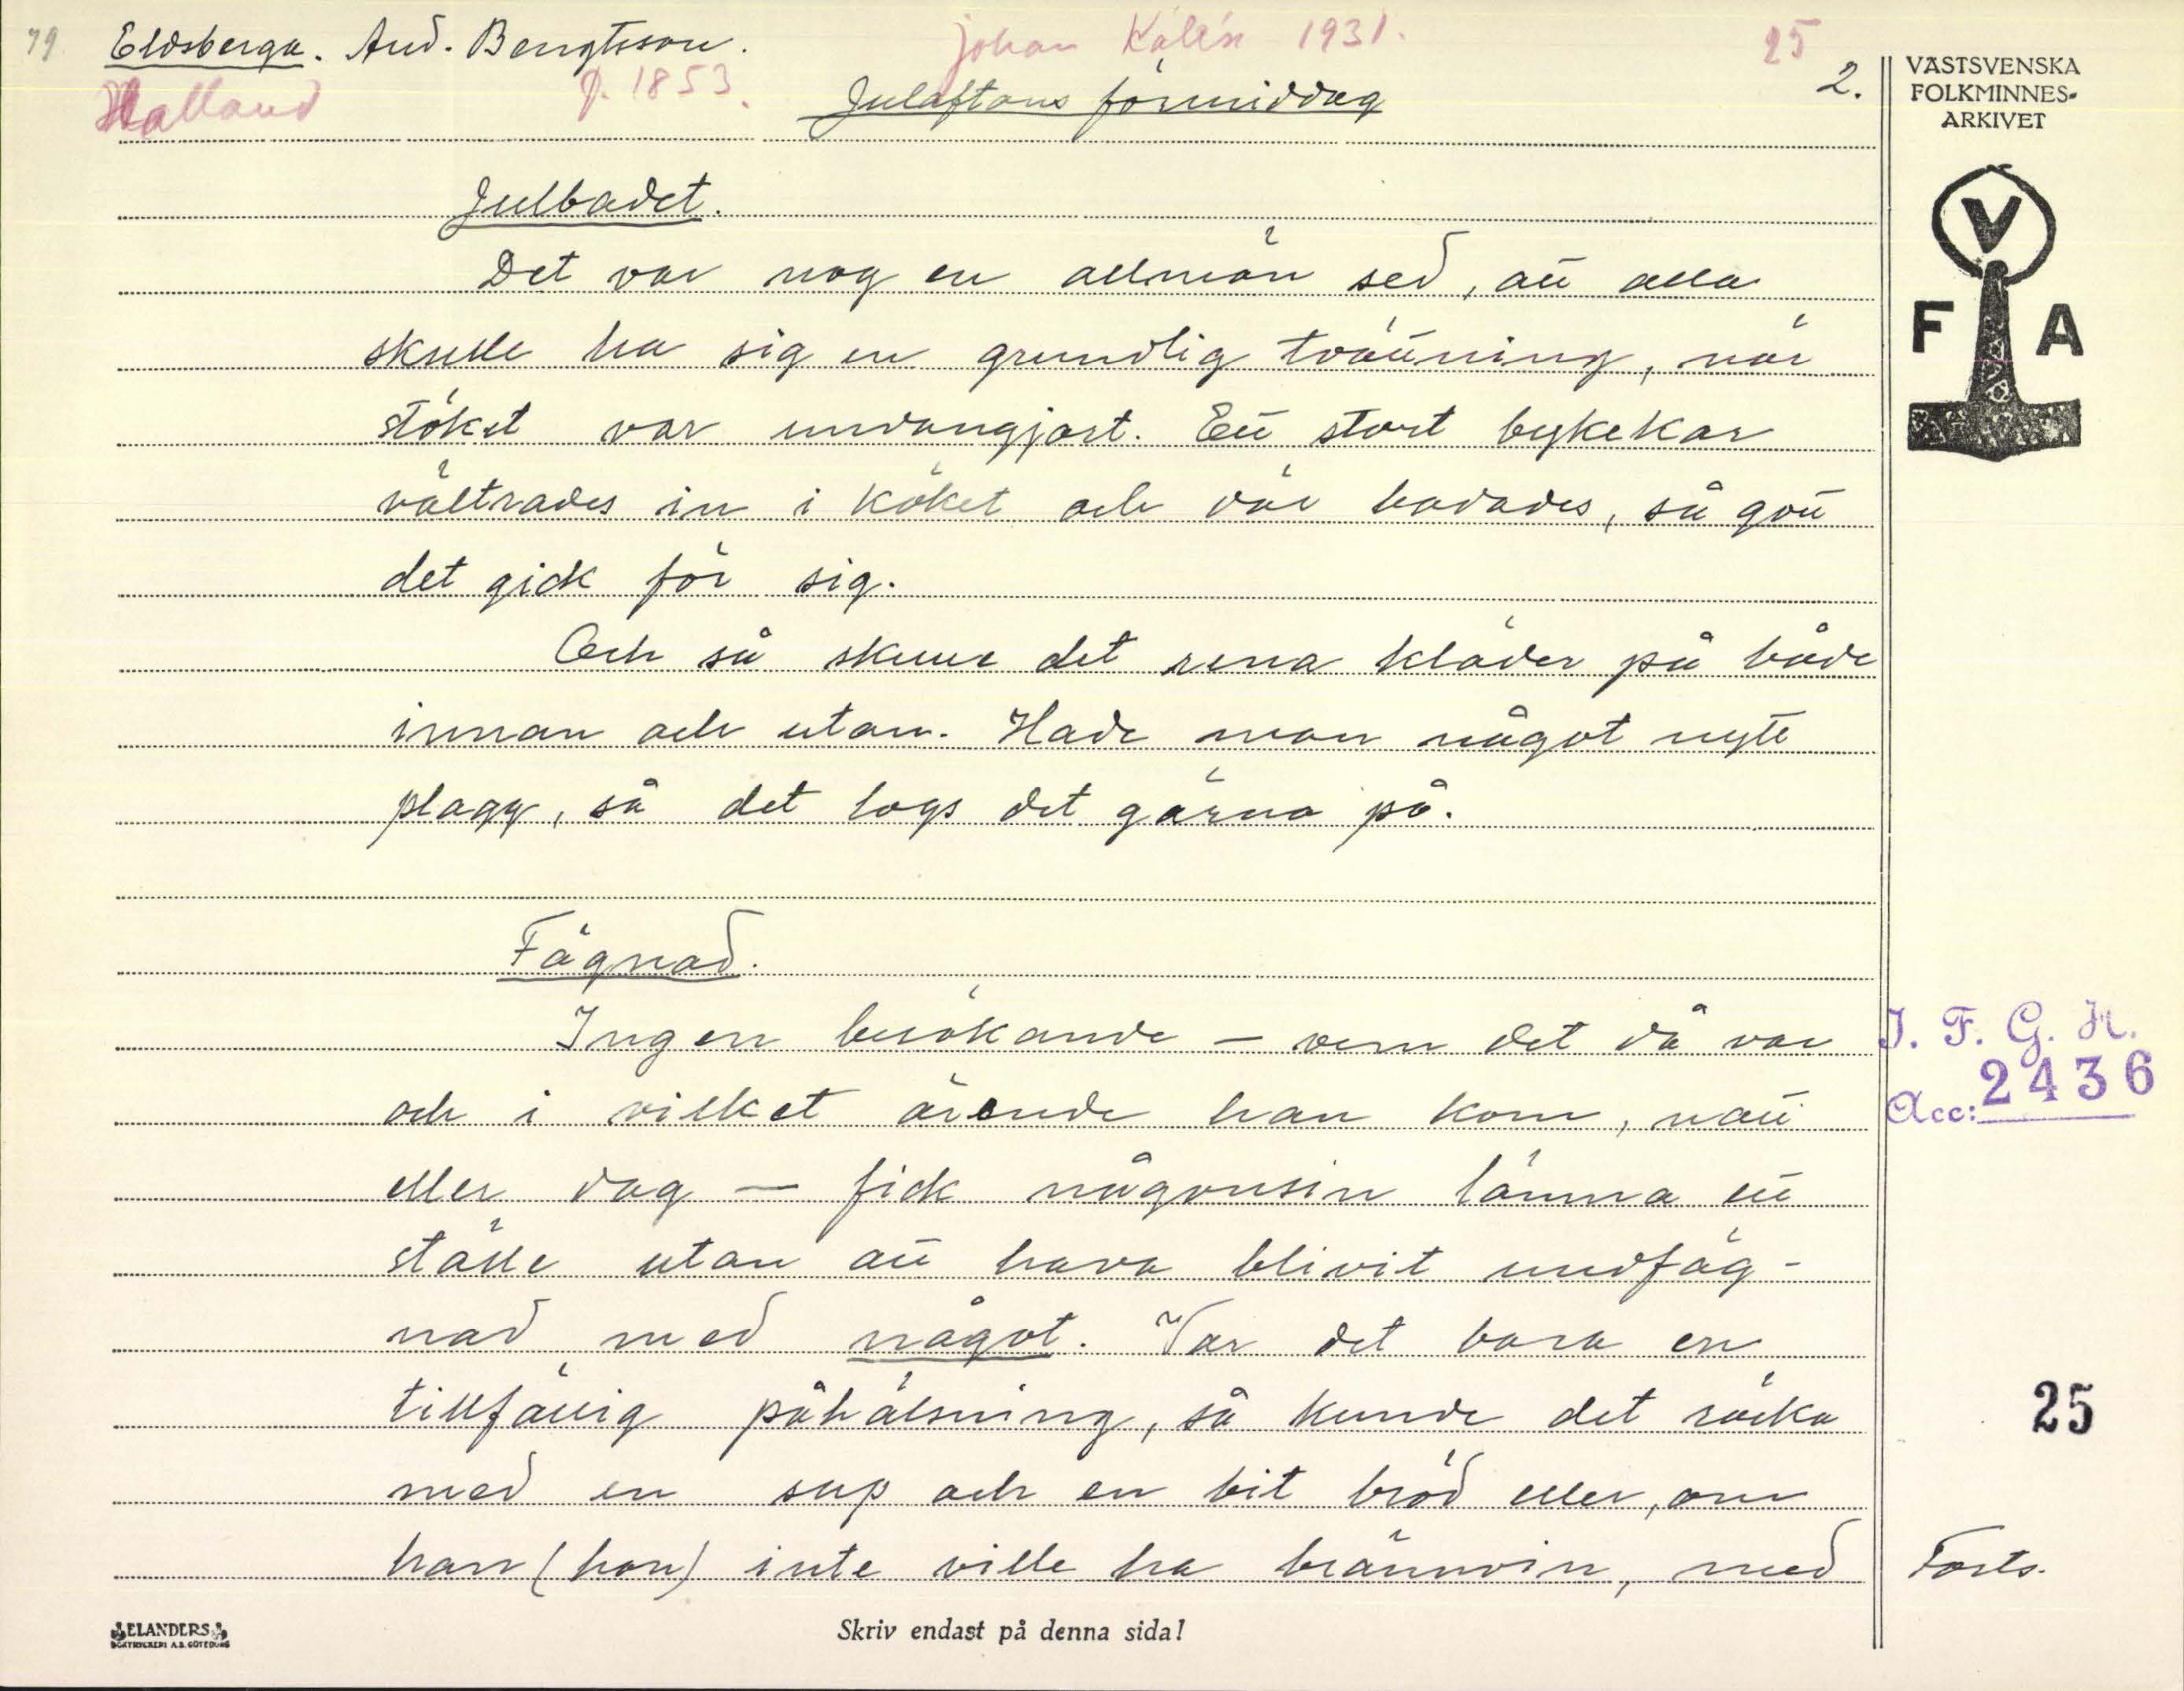 79. Eldsberga. And. Bengtsson. Johan Kalén 1931. 25
Halland f. 1853. Julaftons förmiddag 2.
VÄSTSVENSKA
FOLKMINNES-
ARKIVET
V
F A
Julbadet.
Det var nog en allmän sed, att alla
skulle ha sig en grundlig tvättning, när
stöket var undangjort. Ett stort bykekar
vältrades in i köket och där badades, så gott
det gick för sig.
Och så skulle det rena kläder på både
innan och utan. Hade man något nytt
plagg, så det togs det gärna på.
Fägnad.
Ingen besökande – vem det då var
och i vilket ärende han kom, natt
eller dag – fick någonsin lämna ett
ställe utan att hava blivit undfäg-
nad med något. Var det bara en
tillfällig påhälsning, så kunde det räcka
med en sup och en bit bröd eller, om
han (hon) inte ville ha brännvin, med
I. F. G. H.
Acc: 2436
25
Forts.
ELANDERS
BOKTRYCKERI A.B. GÖTEBORG
Skriv endast på denna sida!